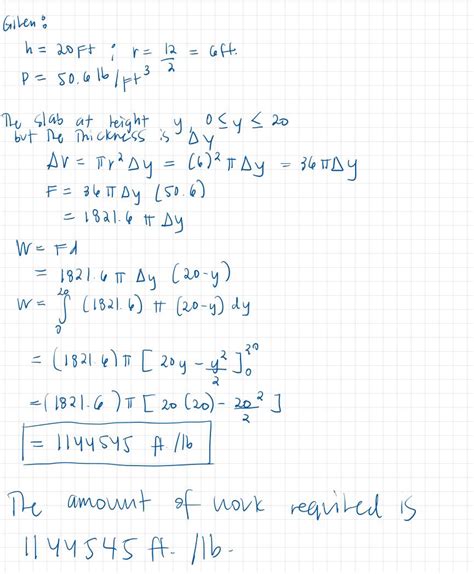 Given:
h = 20 Ft ; r = 12/2 = 6 ft.
P = 50.6 lb/ft³
The slab at height y, 0 ≤ y ≤ 20
but the thickness is Δy
Δv = πr² Δy = (6)² π Δy = 36πΔy
F = 36 π Δy (50.6)
= 1821.6 π Δy
W = Fd
= 1821.6 π Δy (20-y)
W = ∫₀²⁰ (1821.6) π (20-y) dy
= (1821.6) π [ 20y - y²/2 ]₀²⁰
= (1821.6) π [ 20 (20) - 20²/2 ]
= 1144545 ft/lb
The amount of work required is
1144545 ft. /lb.